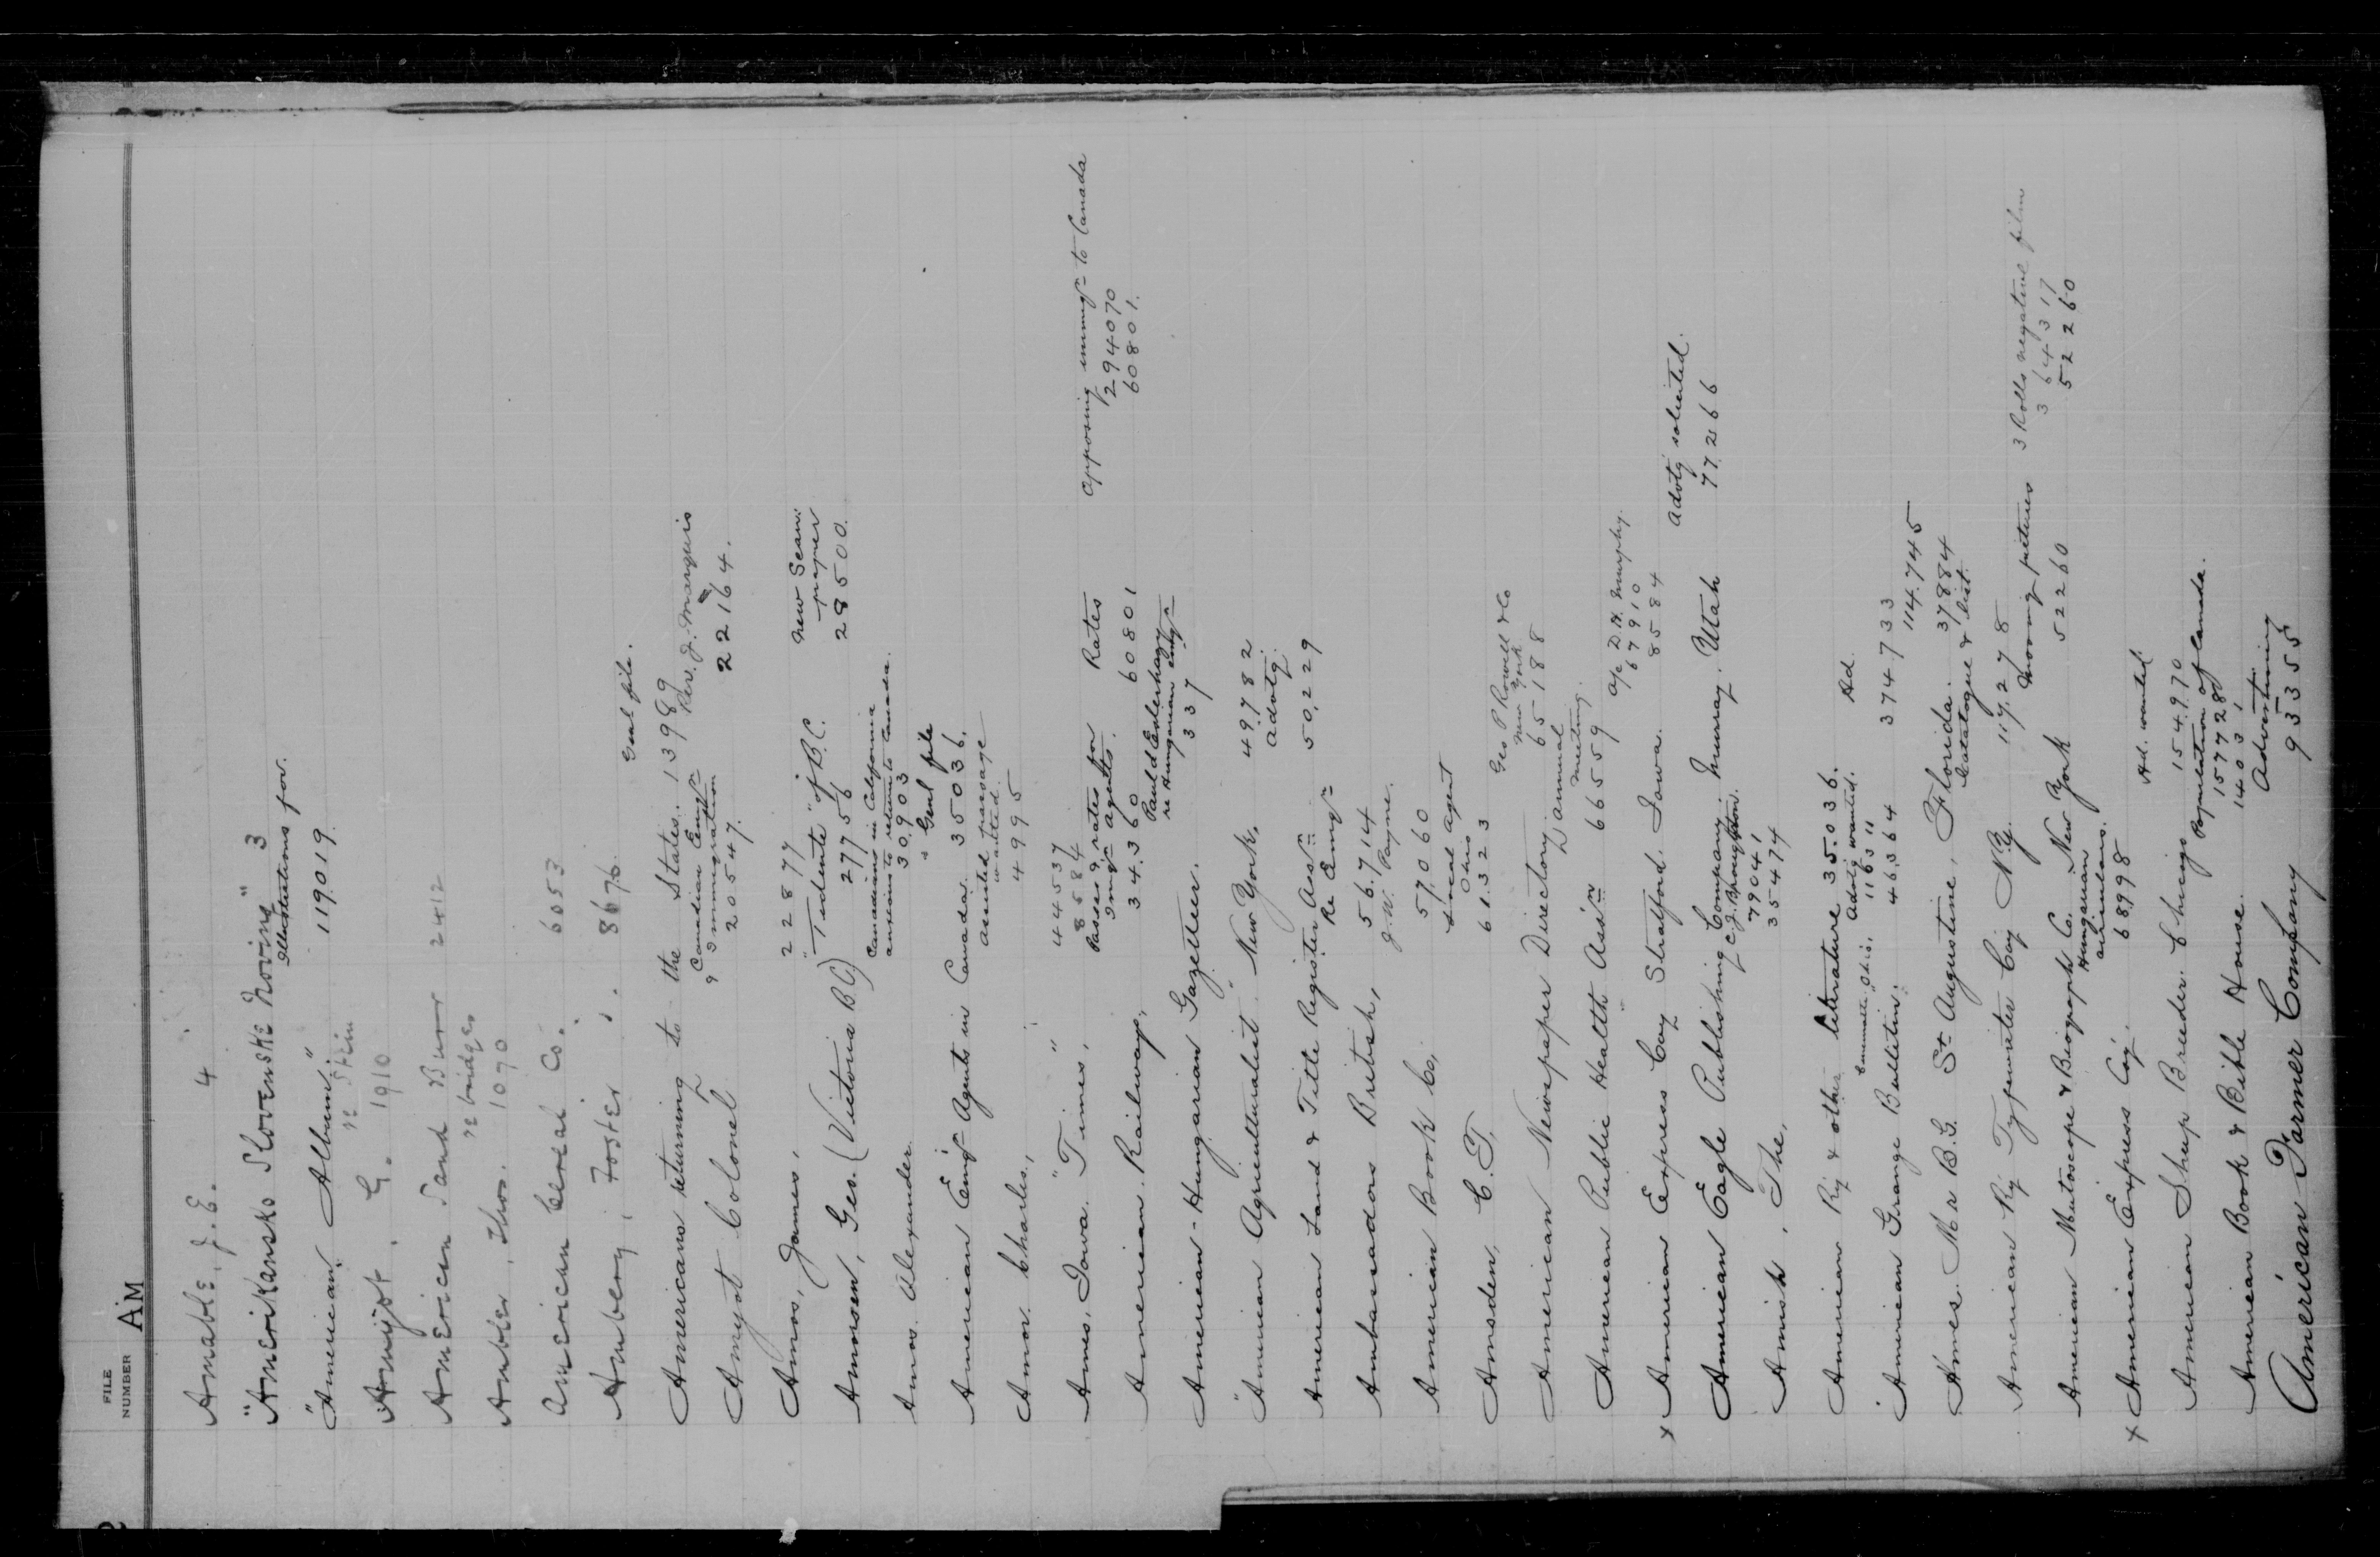 FILE
NUMBER
AM
Amable, J. E. 4
"Amerikansko Slovenske Noviny" 3
Illustrations for.
"American Album" 119019
re Stein
Amyot, G. 1910
American Sand Burr 2412
re bridges
Ambler, Thos. 1070
American Cereal Co. 6053
Amberg, Foster 8676
Genl file.
Americans returning to the States. 13989
Canadian Emigrn Rev. J. Marquis
& Immigration
Amyot Colonel 20547. 22164.
Amos, James, 22877 New Scan.
paper
Amosen, Geo. (Victoria B.C.) "Tidente" of B.C. 27756 28500.
Canadians in California
anxious to return to Canada.
Amos Alexander 30903
" Genl file
American Emigt Agents in Canada 35036.
assisted passage
wanted
Amor Charles, 4995
44537
Ames, Iowa. "Times", 8584
Passes & rates for Rates opposing immign to Canada
Imign agents. 294070
American Railways, 34360 60801 60801.
Paul d Esterhazy
re Hungarian emign
American-Hungarian Gazetteer. 337
"American Agriculturalist" New York, 49782
advtg.
American Land & Title Register Assn 50229
Re Emign
Ambassadors British, 56714
J. W. Payne.
American Book Co, 57060
Local agent
Ohio
Amsden, C. T. 61323
Geo P Rowell & Co
New York
American Newspaper Directory. 65188
annual
meeting.
American Public Health Ass'n 66559
a/c D. H. Murphy.
67910
x American Express Coy Stratford. Iowa. 8584
advtg solicited.
American Eagle Publishing Company. Murray. Utah 77266
C. J. Broughton.
79041
Amish, The, 35474
American Ry & other literature 35036.
Advtg wanted. Ad.
11631
American Grange Bulletin. 46364 374733
114.745
Ames. Mr B.G. St Augustine, Florida. 37884
Catalogue & list.
American Ry Typewriter Coy N.Y. 117278
Moving pictures 3 Rolls negative film
364317
American Mutoscope & Biograph Co. New York 52260 52260
Hungarian
airiculars.
x American Express Coy. 68998
Ad. wanted.
American Sheep Breeder. Chicago 154970
Population of Canada.
157728
American Book & Bible House. 14031
Advertising
American Farmer Company 93355